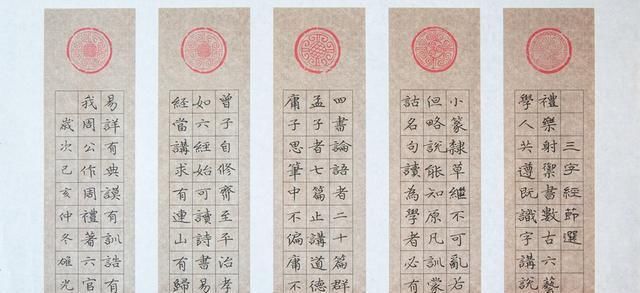 三字經節選
禮樂射禦書數古六藝
學人共遵既識字講說
小篆隸草繼不可亂若
但略說能知原凡訓蒙
詁名句讀為學者必有
四書論語者二十篇群
孟子者七篇止講道德
庸子思筆中不偏庸不
曾子自修齊至平治孝
如六經始可讀詩書易
經當講求有連山有歸
易詳有典謨有訓誥有
我周公作周禮著六官
歲次己亥仲冬光